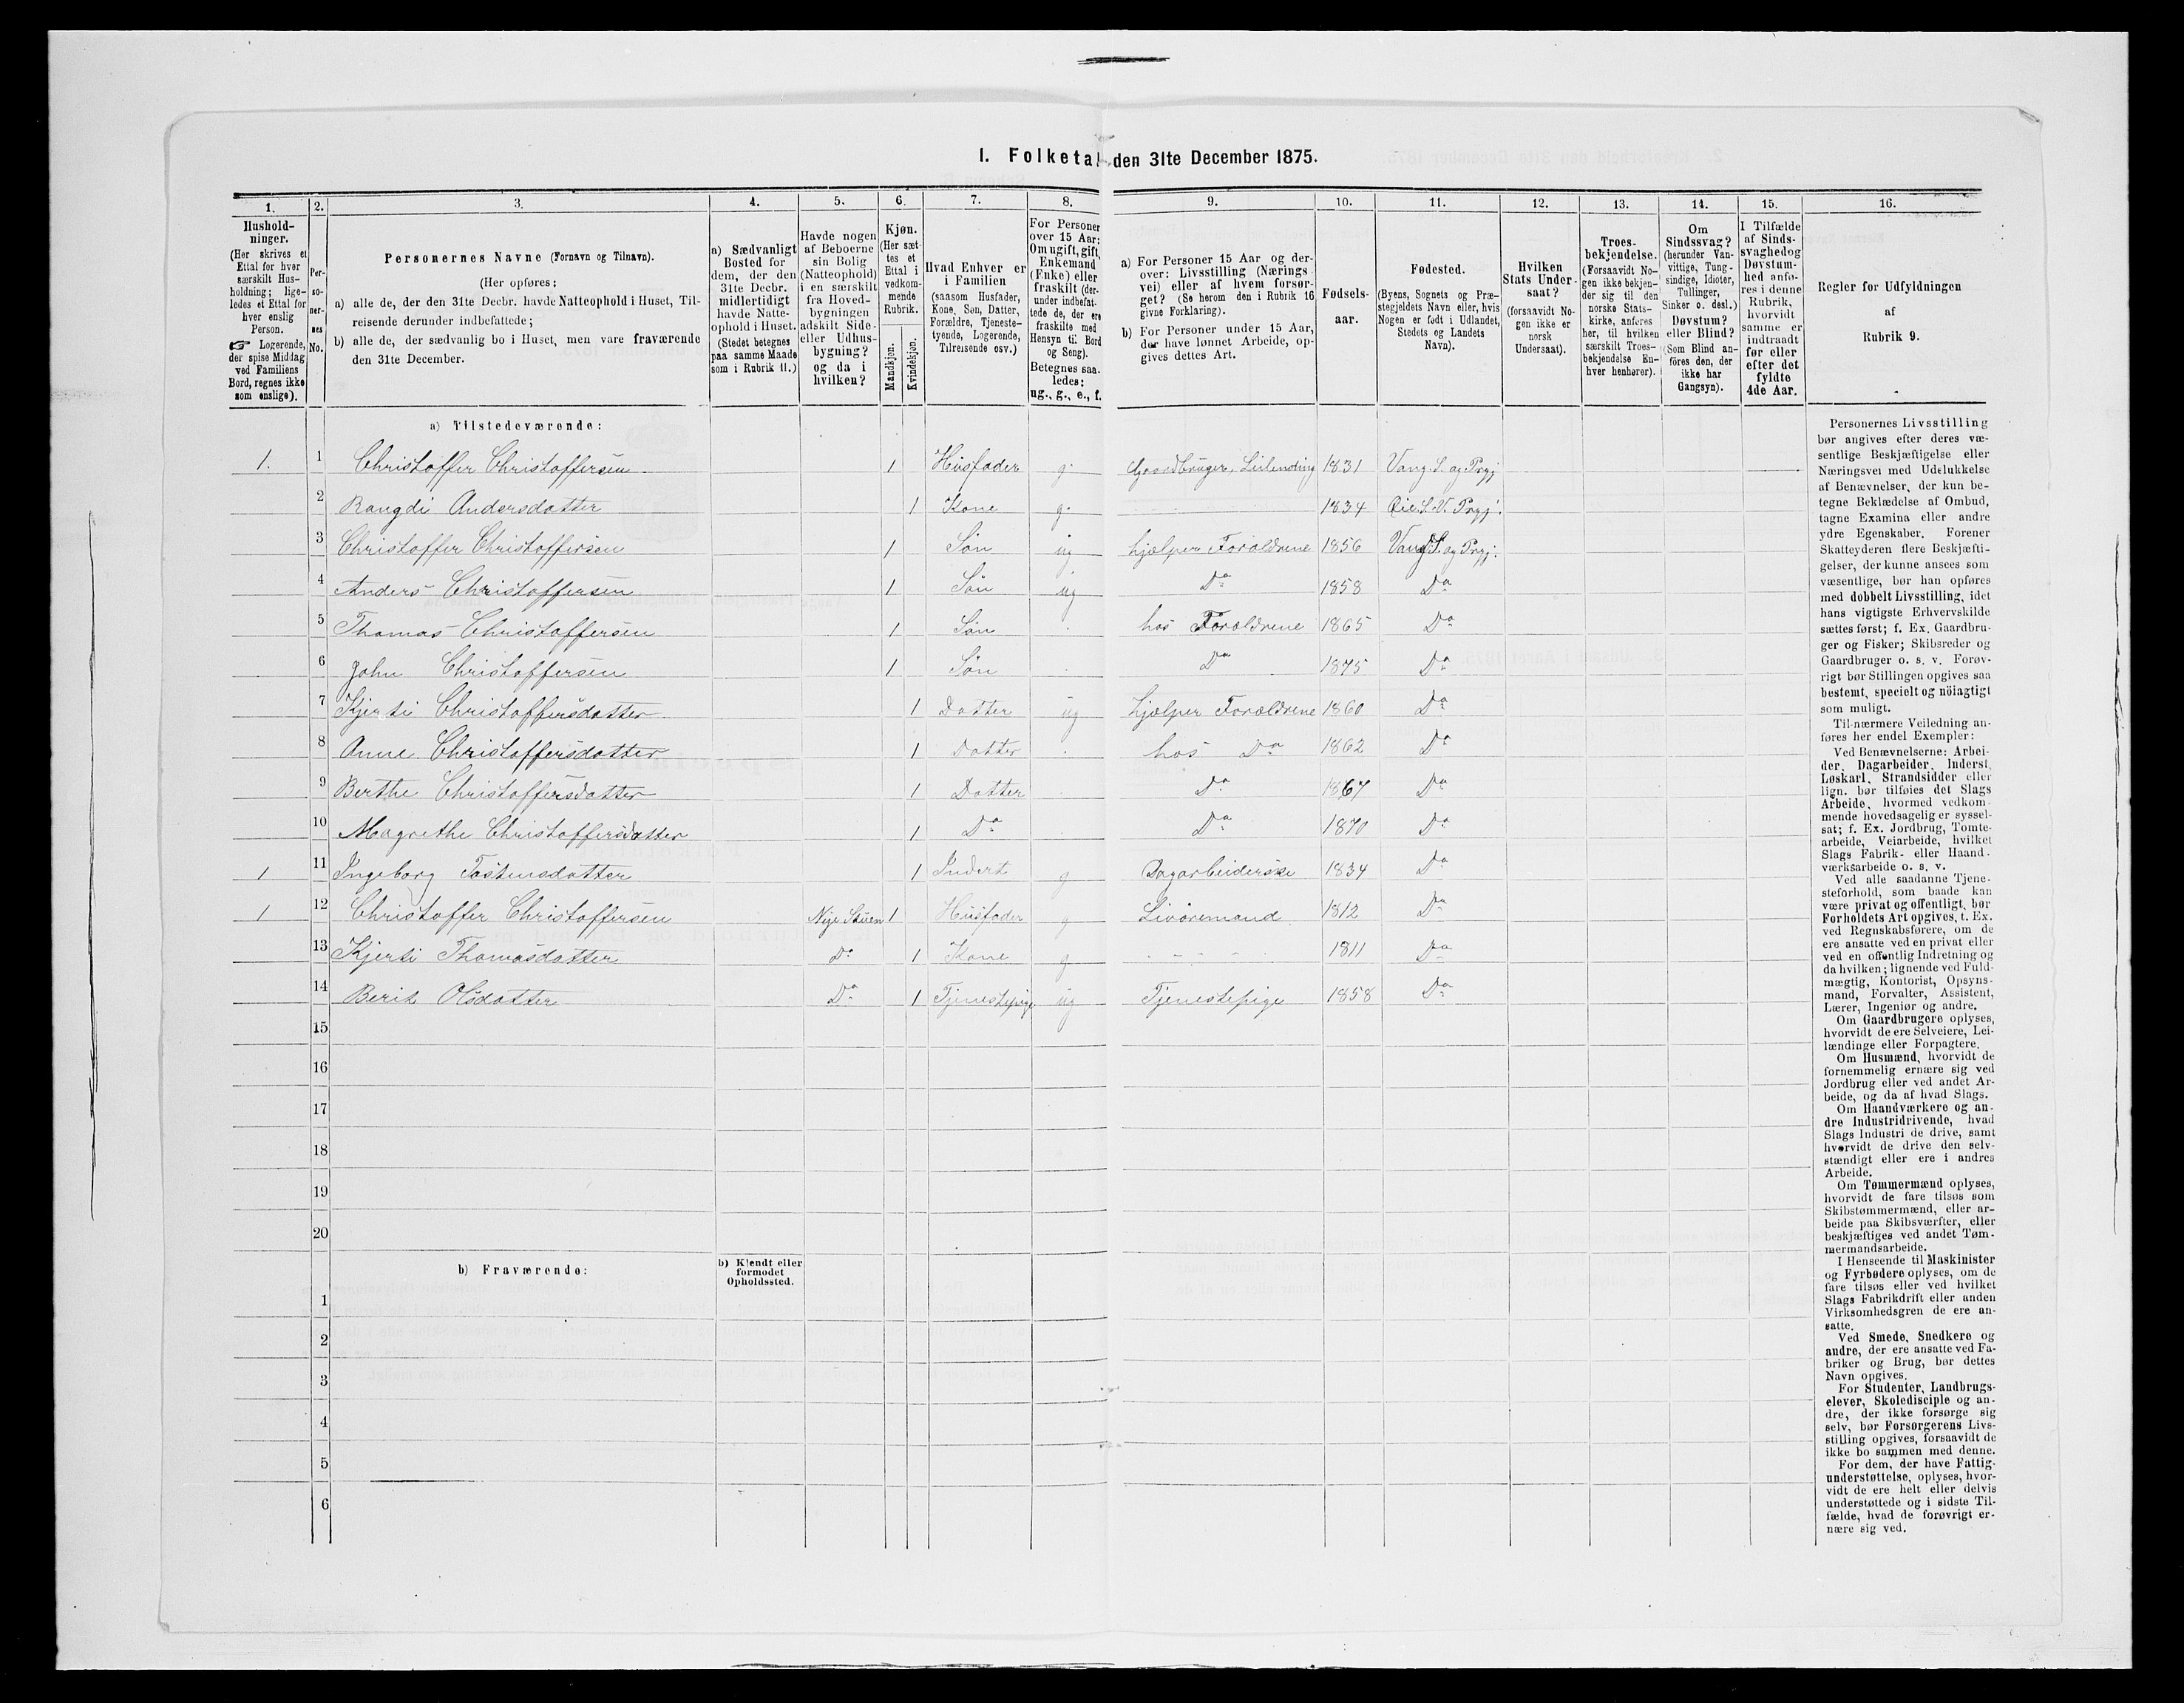 1. Folketal den 31te December 1875.
1. 2. 3. 4. 5. 6. 7. 8. 9. 10. 11. 12. 13. 14. 15. 16.
Hushold-
ninger.
(Her skrives et
Ettal for hver
særskilt Hus-
holdning; lige-
ledes et Ettal for
hver enslig
Person.
☞ Logerende,
der spise Middag
ved Familiens
Bord, regnes ikke
som enslige).
Per-
so-
ner-
nes
No.
Personernes Navne (Fornavn og Tilnavn).
(Her opføres:
a) alle de, der den 31te Decbr. havde Natteophold i Huset, Til-
reisende derunder indbefattede;
b) alle de, der sædvanlig bo i Huset, men vare fraværende
den 31te December.
a) Sædvanligt
Bosted for
dem, der den
31te Decbr.
midlertidigt
havde Natte-
ophold i Huset.
(Stedet betegnes
paa samme Maade
som i Rubrik 11.)
Havde nogen
af Beboerne
sin Bolig
(Natteophold)
i en særskilt
fra Hoved-
bygningen
adskilt Side-
eller Udhus-
bygning?
og da i
hvilken?
Kjøn.
(Her sæt-
tes et
Ettal i
vedkom-
mende
Rubrik.
Mandkjøn.
Kvindekjøn.
Hvad Enhver er
i Familien
(saasom Husfader,
Kone, Søn, Datter,
Forældre, Tjeneste-
tyende, Logerende,
Tilreisende osv.)
For Personer
over 15 Aar:
Om ugift, gift,
Enkemand
(Enke) eller
fraskilt (der-
under indbefat-
tede de, der ere
fraskilte med
Hensyn til Bord
og Seng).
Betegnes saa-
ledes:
ug., g., e., f.
a) For Personer 15 Aar og der-
over: Livsstilling (Nærings-
vei) eller af hvem forsør-
get? (Se herom den i Rubrik 16
givne Forklaring).
b) For Personer under 15 Aar,
der have lønnet Arbeide, op-
gives dettes Art.
Fødsels-
aar.
Fødested.
(Byens, Sognets og Præ-
stegjeldets Navn eller, hvis
Nogen er født i Udlandet,
Stedets og Landets
Navn).
Hvilken
Stats Under-
saat?
(forsaavidt No-
gen ikke er
norsk
Undersaat).
Troes-
bekjendelse.
(Forsaavidt No-
gen ikke bekjen-
der sig til den
norske Stats-
kirke, anføres
her, til hvilken
særskilt Troes-
bekjendelse En-
hver henhører).
Om
Sindssvag?
(herunder Van-
vittige, Tung-
sindige, Idioter,
Tullinger,
Sinker o. desl.)
Døvstum?
eller Blind?
(Som Blind an-
föres den, der
ikke har
Gangsyn).
I Tilfælde
af Sinds-
svaghedog
Døvstum-
hed anfø-
res i denne
Rubrik,
hvorvidt
samme er
indtraadt
før eller
efter det
fyldte
4de Aar.
Regler for Udfyldningen
af
Rubrik 9.
a) Tilstedeværende:
1. 1 Christoffer Christoffersen 1 Husfader g. Gaardbruger, Leilending 1831 Vang S. og Prgj
2 Rangdi Andersdatter 1 Kone g. 1834 Øie S. V. Prgj.
3 Christoffer Christoffersen 1 Søn ug hjælper Forældrene 1856 Vang S. og Prgj.
4 Anders Christoffersen 1 Søn ug Do 1858 Do
5 Thomas Christoffersen 1 Søn hos Forældrene 1865 Do
6 John Christoffersen 1 Søn Do 1875 Do
7 Kjersti Christoffersdatter 1 Datter ug hjælper Forældrene 1860 Do
8 Anne Christoffersdatter 1 Datter hos Do 1862 Do
9 Berthe Christoffersdatter 1 Datter Do 1867 Do
10 Magrethe Christoffersdatter 1 Do Do 1870 Do
1 11 Ingeborg Tostensdatter 1 Inderst g Dagarbeiderske 1834 Do
1 12 Christoffer Christoffersen Nye Stuen 1 Husfader g Livøremand 1812 Do
13 Kjersti Thomasdatter Do 1 Kone g 1811 Do
14 Berit Olsdatter Do 1 Tjenestepige ug Tjenestepige 1858 Do
15
16
17
18
19
20
b) Fraværende:
b) Kjendt eller
formodet
Opholdssted.
1
2
3
4
5
6
Personernes Livsstilling
bør angives efter deres væ-
sentlige Beskjæftigelse eller
Næringsvei med Udelukkelse
af Benævnelser, der kun be-
tegne Beklædelse af Ombud,
tagne Examina eller andre
ydre Egenskaber. Forener
Skatteyderen flere Beskjæfti-
gelser, der kunne ansees som
væsentlige, bør han opføres
med dobbelt Livsstilling, idet
hans vigtigste Erhvervskilde
sættes først; f. Ex. Gaardbru-
ger og Fisker; Skibsreder og
Gaardbruger o. s. v. Forøv-
rigt bør Stillingen opgives saa
bestemt, specielt og nöiagtigt
som muligt.
Til nærmere Veiledning an-
føres her endel Exempler:
Ved Benævnelserne: Arbei-
der, Dagarbeider, Inderst,
Løskarl, Strandsidder eller
lign. bør tilføies det Slags
Arbeide, hvormed vedkom-
mende hovedsagelig er syssel-
sat; f. Ex. Jordbrug, Tomte-
arbeide, Veiarbeide, hvilket
Slags Fabrik- eller Haand-
værksarbeide o. s. v.
Ved alle saadanne Tjene-
steforhold, som baade kan
være privat og offentligt, bør
Forholdets Art opgives, t. Ex.
ved Regnskabsførere, om de
ere ansatte ved en privat eller
ved en offentlig Indretning og
da hvilken; lignende ved Fuld-
mægtig, Kontorist, Opsyns-
mand, Forvalter, Assistent,
Lærer, Ingeniør og andre.
Om Gaardbrugere oplyses,
hvorvidt de ere Selveiere, Lei-
lændinge eller Forpagtere.
Om Husmænd, hvorvidt de
fornemmelig ernære sig ved
Jordbrug eller ved andet Ar-
beide, og da af hvad Slags.
Om Haandværkere og an-
dre Industridrivende, hvad
Slags Industri de drive, samt
hvorvidt de drive den selv-
stændigt eller ere i andres
Arbeide.
Om Tømmermænd oplyses,
hvorvidt de fare tilsøs som
Skibstømmermænd, eller ar-
beide paa Skibsværfter, eller
beskjæftiges ved andet Tøm-
mermandsarbeide.
I Henseende til Maskinister
og Fyrbødere oplyses, om de
fare tilsøs eller ved hvilket
Slags Fabrikdrift eller anden
Virksomhedsgren de ere an-
satte.
Ved Smede, Snedkere og
andre, der ere ansatte ved Fa-
briker og Brug, bør dettes
Navn opgives.
For Studenter, Landbrugs-
elever, Skoledisciple og an-
dre, der ikke forsørge sig
selv, bør Forsørgerens Livs-
stilling opgives, forsaavidt de
ikke bo sammen med denne.
For dem, der have Fattig-
understøttelse, oplyses, hvor-
vidt de ere helt eller delvis
understøttede og i sidste Til-
fælde, hvad de forøvrigt er-
nære sig ved.